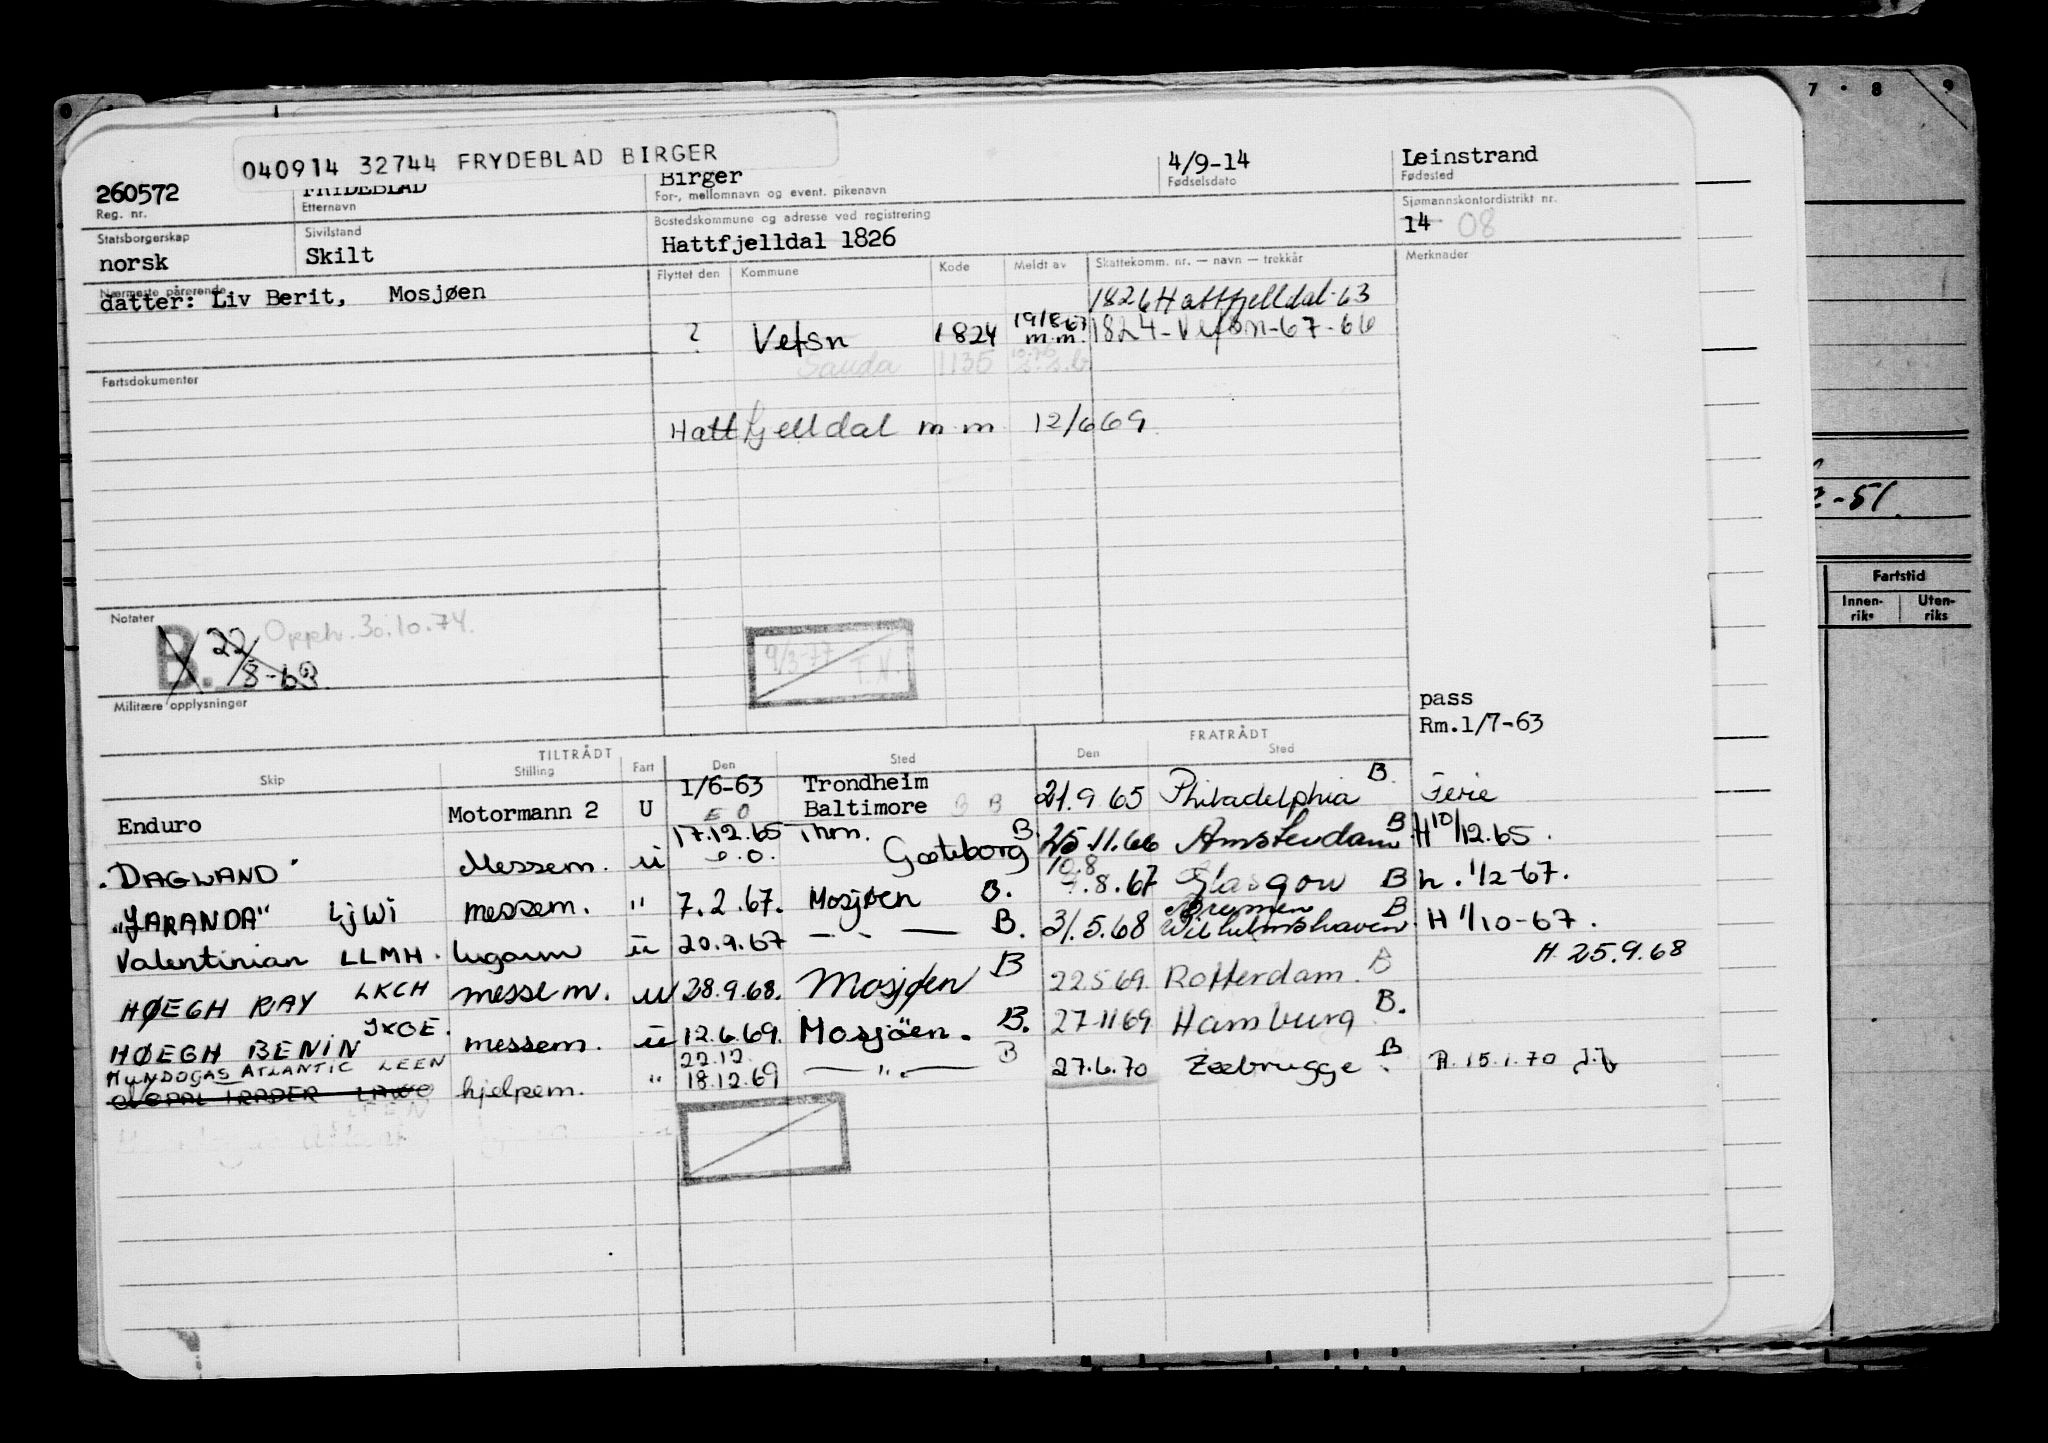 7 · 8 · 9
040914 32744 FRYDEBLAD BIRGER
260572 FRYDEBLAD Birger 4/9-14 Leinstrand
Reg. nr. Etternavn For-, mellomnavn og event. pikenavn Fødselsdato Fødested
Statsborgerskap Sivilstand Bostedskommune og adresse ved registrering Sjømannskontordistrikt nr.
norsk Skilt Hattfjelldal 1826 14 08
Nærmeste pårørende Flyttet den Kommune Kode Meldt av Skattekomm. nr. — navn — trekkår Merknader
datter: Liv Berit, Mosjøen 1826 Hattfjelldal-63
? Vefsn 1824 19/8-67 m.m. 1824-Vefsn-67-66
Sauda 1135
Fartsdokumenter
Hattfjelldal m m 12/6 69
2-51.
Fartstid
Innen-riks Uten-riks
Notater
B. 22/8-63 Opph. 30.10.74.
9/3-77 T.N.
Militære opplysninger
pass
Rm.1/7-63
TILTRÅDT FRATRÅDT
Skip Stilling Fart Den Sted Den Sted
Enduro Motormann 2 U 1/6-63 Trondheim 21.9 65 Philadelphia B. Ferie
E O Baltimore B B
"DAGLAND" Messem. u 17.12.65 Thm. Gøteborg B. 25.11.66 Amsterdam B. H 10/12.65.
e.o.
"JARANDA" LJWI messem. " 7.2.67. Mosjøen B. 10.8 .8.67 Glasgow B h. 1/2-67.
Valentinian LLMH. lugarm u 20.9.67 — " — B. 31.5.68 Bremen Wilhelmshaven B H 1/10-67.
HØEGH RAY LKCH messem. u 28.9.68. Mosjøen B 22 5 69. Rotterdam. B H. 25.9.68
HØEGH BENIN JXOE. messem. u 12.6.69. Mosjöen. B. 27-11 69 Hamburg B.
HUNDOGAS ATLANTIC LEEN 22.12
TRADER hjelpem. " 18.12.69 — " — B 27.6.70 Zeebrugge B. A. 15.1.70
LEEN